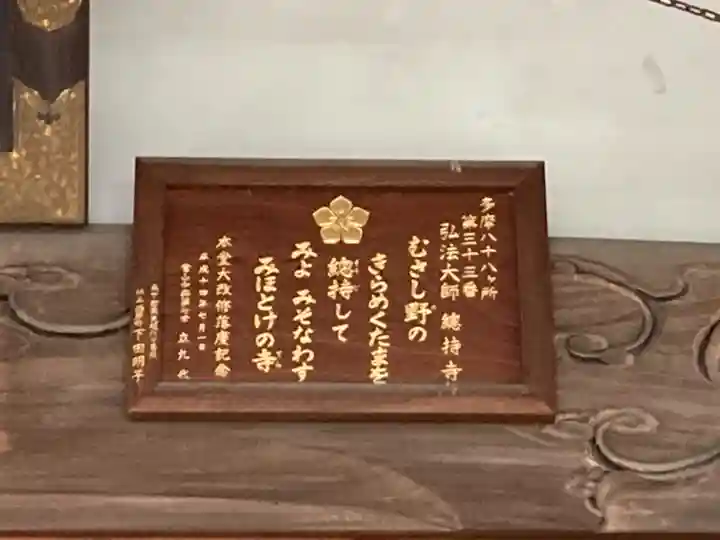 多摩八十八ヶ所
第三十三番
弘法大師 總持寺
むさし野の
きらめくたまを
總持して
みよ みそなわす
みほとけの寺
本堂大改修落慶記念
平成十四年七月一日